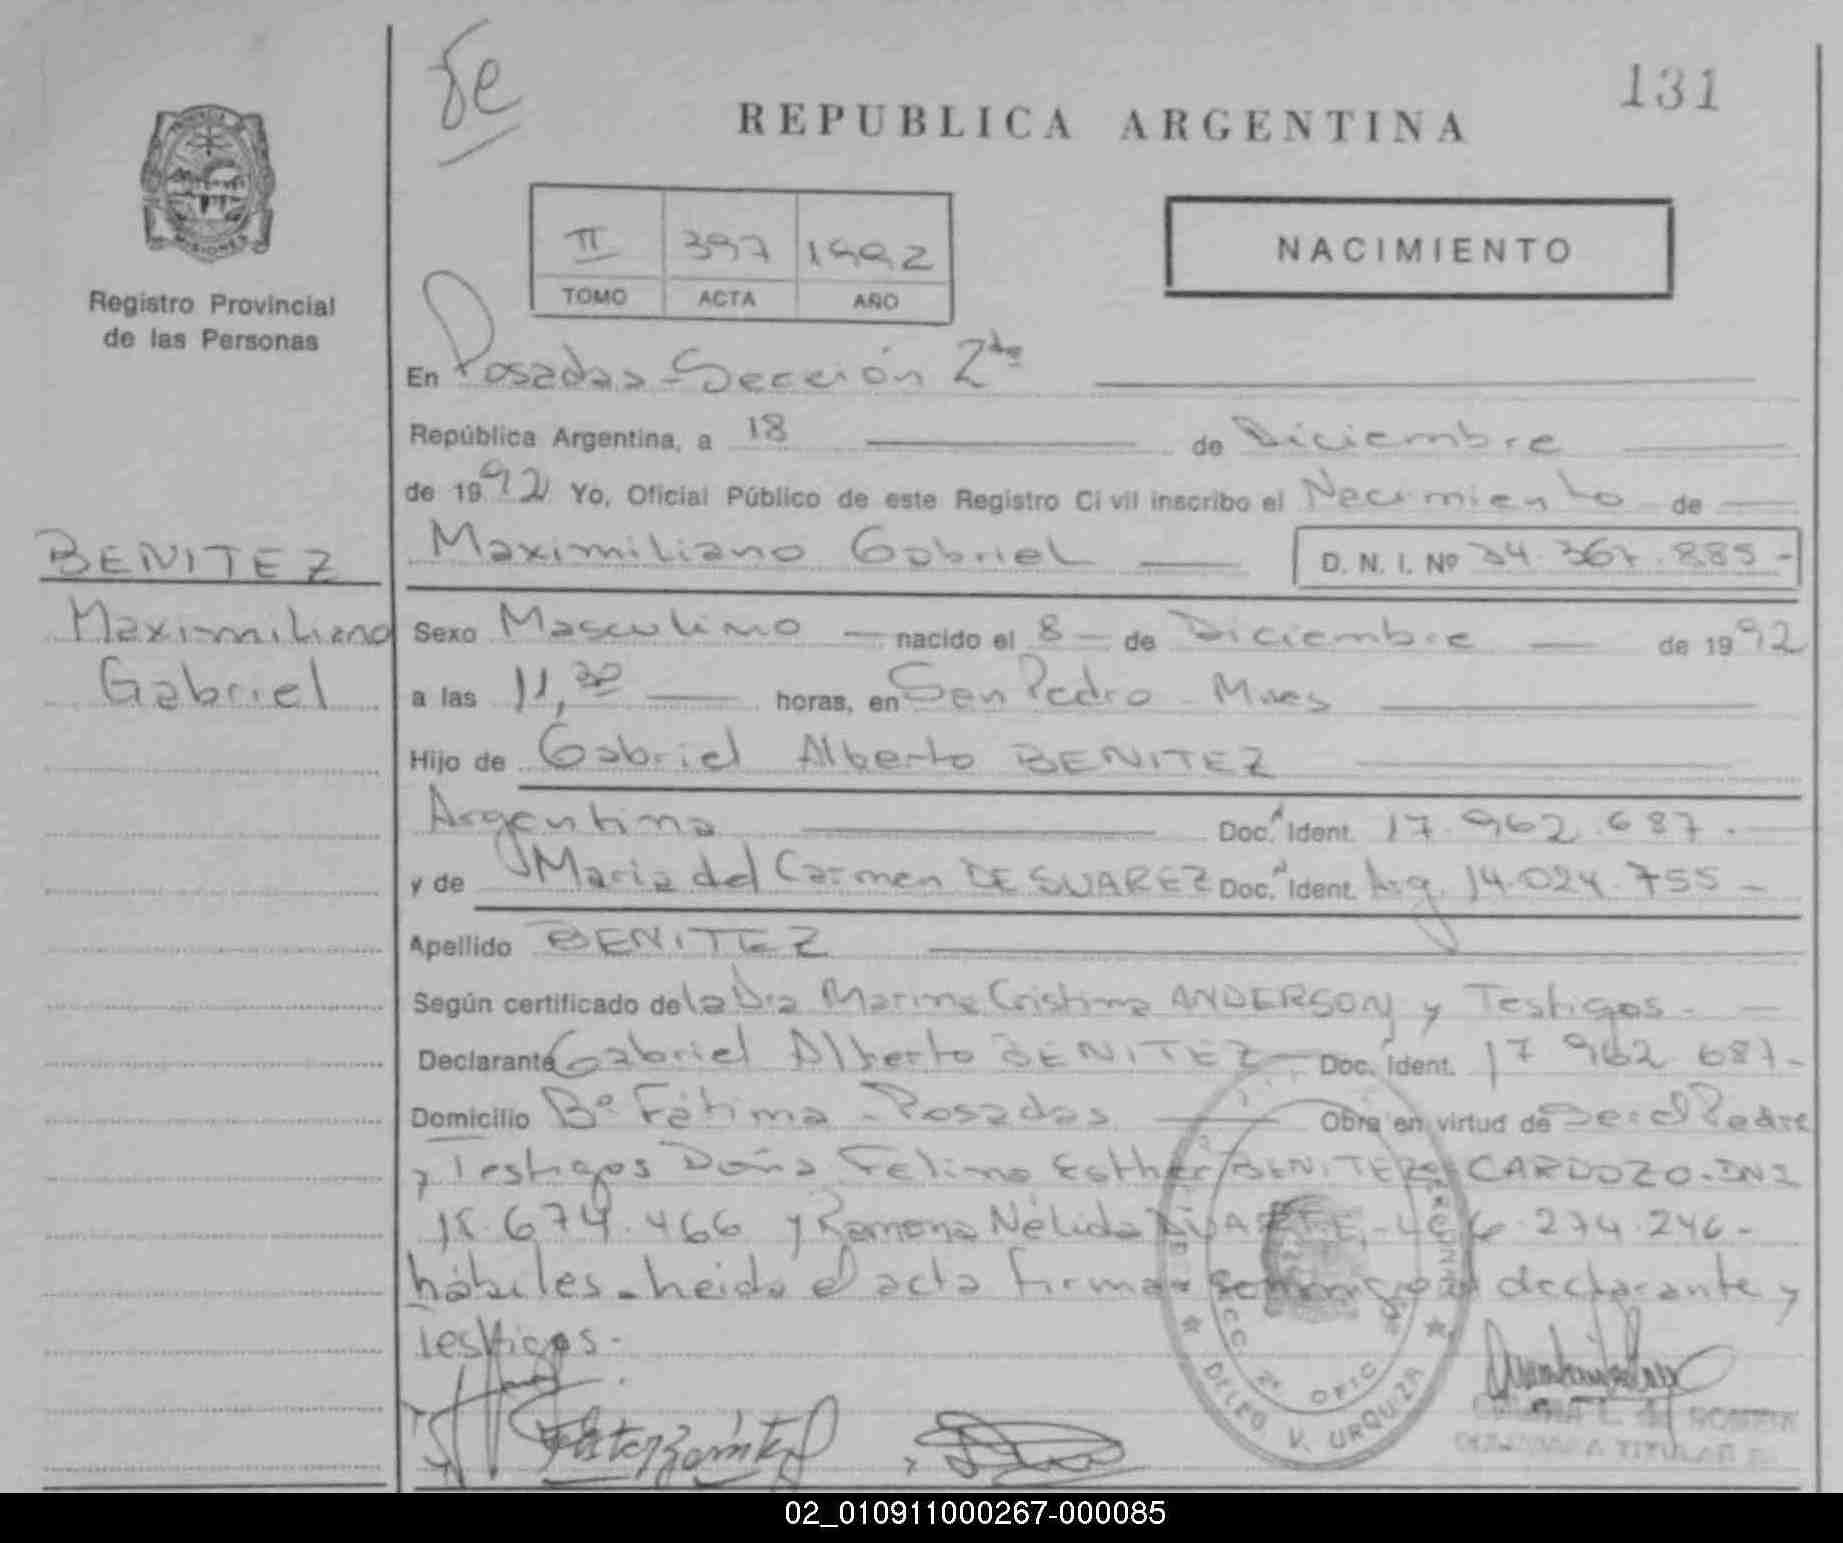 Je
131
REPUBLICA ARGENTINA
MISIONES
Registro Provincial
de las Personas
II 397 1992
TOMO ACTA AÑO
NACIMIENTO
En Posadas - Sección 2da
República Argentina, a 18 de Diciembre
de 1992 Yo, Oficial Público de este Registro Civil inscribo el Nacimiento de
BENITEZ
Maximiliano Gabriel
Maximiliano Gabriel D. N. I. Nº 34.367.885-
Sexo Masculino nacido el 8 de Diciembre de 1992
a las 11,30 horas, en San Pedro - Mnes
Hijo de Gabriel Alberto BENITEZ
Argentina Doc. Ident. 17.962.687.
y de Maria del Carmen DE SUAREZ Doc. Ident. Arg. 14.024.755-
Apellido BENITEZ
Según certificado de la Dra Marina Cristina ANDERSON y Testigos-
Declarante Gabriel Alberto BENITEZ Doc. Ident. 17 962 687-
Domicilio Bº Fátima - Posadas Obra en virtud de Ser el Padre
y Testigos Doña Felina Esther BENITEZ de CARDOZO-DNI
18.674.466 y Ramona Nélida DUARTE - 6.274.246-
hábiles - heida el acta firman conmigo el declarante y
Testigos.-
SECC 2ª OFIC
DELEG V. URQUIZA
TITULAR
02_010911000267-000085